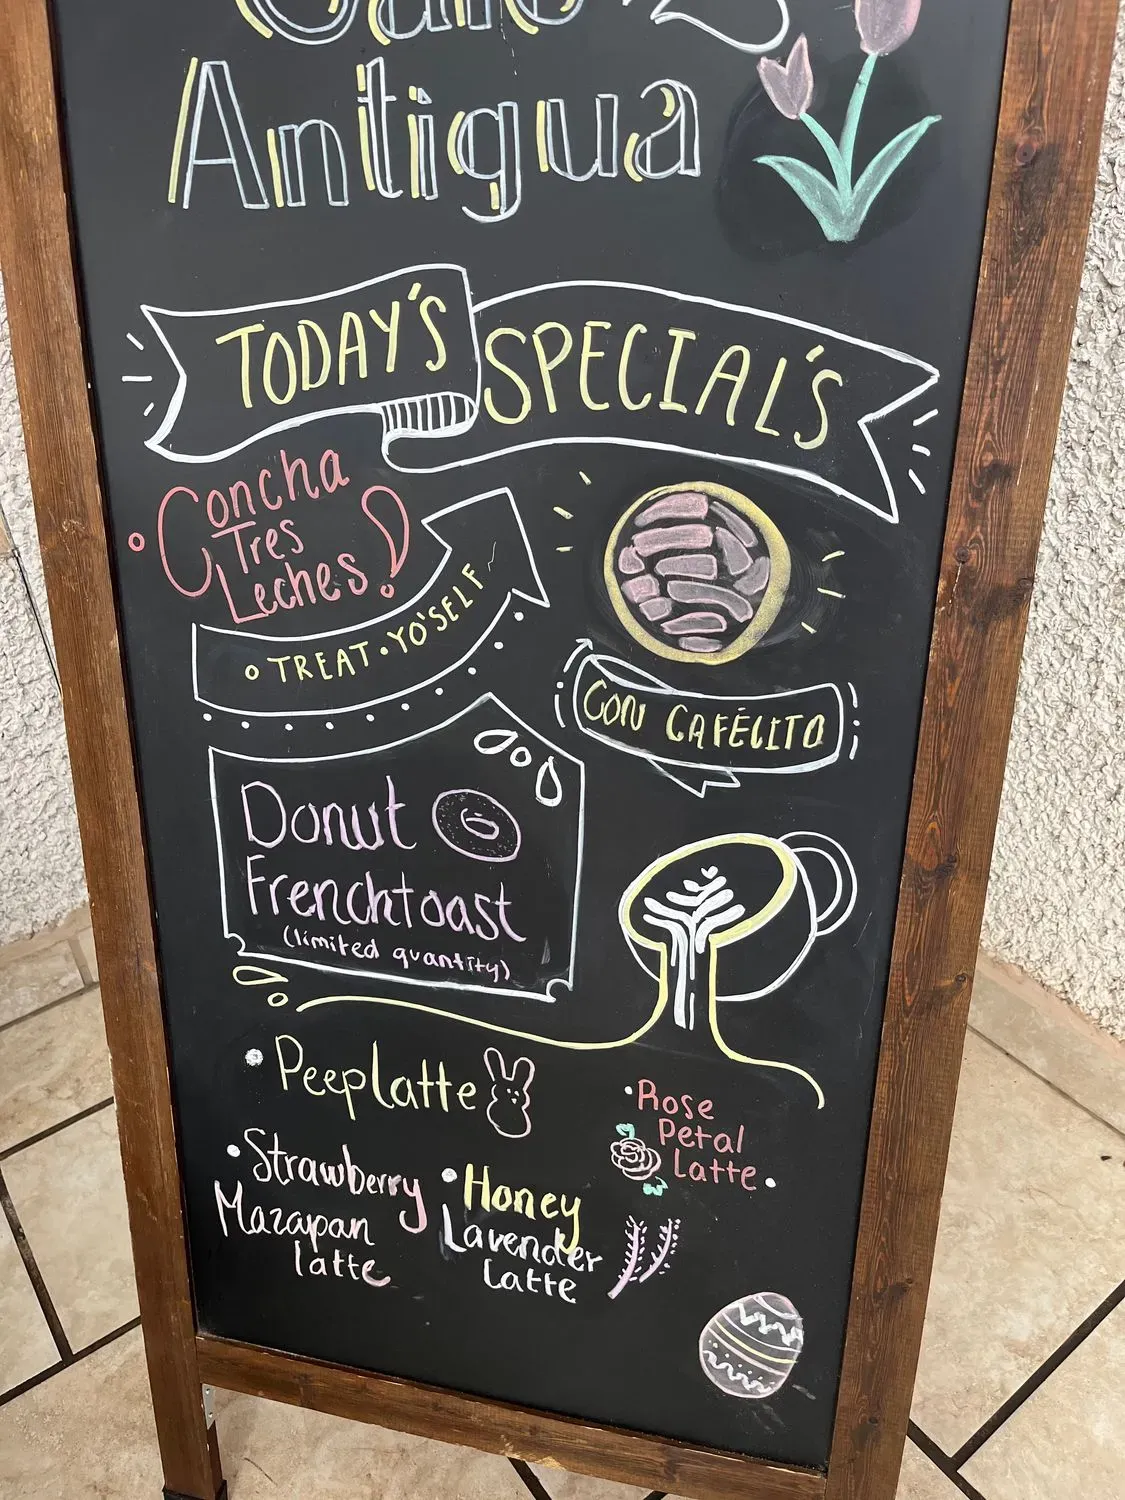 Café
Antigua
TODAY'S SPECIAL'S
Concha
Tres
Leches!
TREAT • YO'SELF
CON CAFÉCITO
Donut
Frenchtoast
(limited quantity)
• Peep latte
• Rose
Petal
Latte •
• Strawberry
Mazapan
latte
• Honey
Lavender
Latte